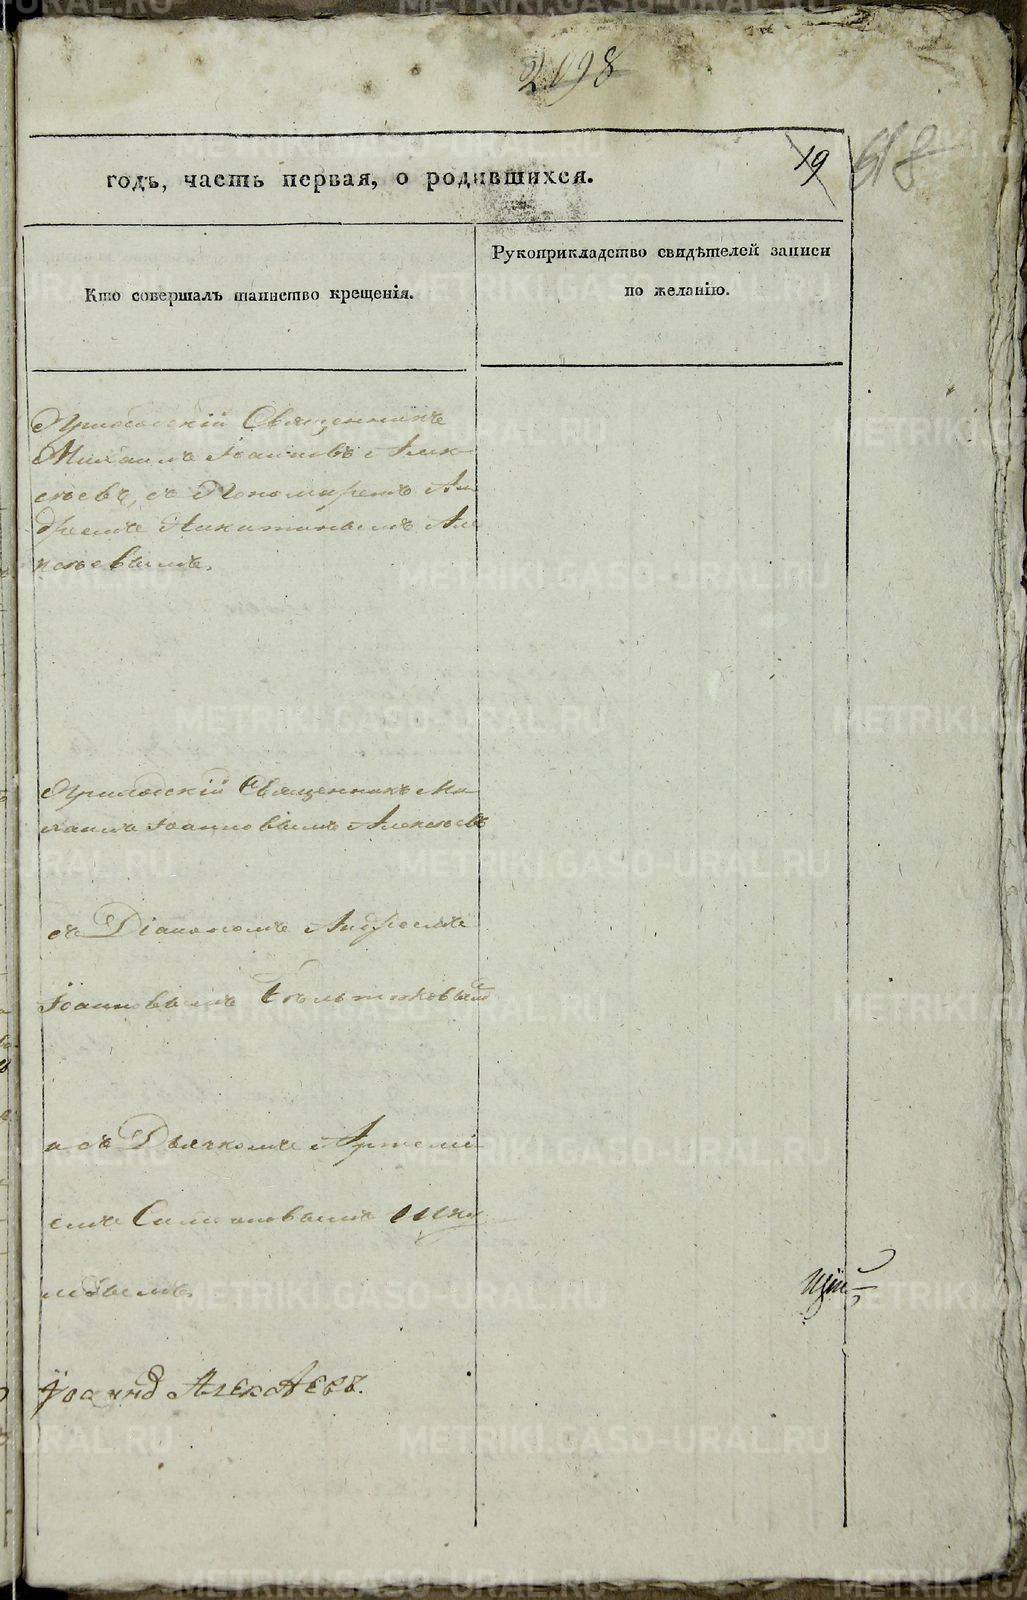 2198
годъ, часть первая, о родившихся.
19
618
Кто совершалъ таинство крещенія.
Рукоприкладство свидѣтелей записи
по желанію.
Приходскій Священникъ
Михаилъ Іоанновъ Алек-
сѣевъ, съ Пономаремъ Ан
дреемъ Никитинымъ Але
ксѣевымъ.
Приходскій Священникъ Ми
хаилъ Іоанновымъ Алексѣевъ
съ Діакономъ Андреемъ
Іоанновымъ
и съ Дьячкомъ Артемі
емъ Симоновымъ
Іоаннъ Алексѣевъ.
METRIKI.GASO-URAL.RU